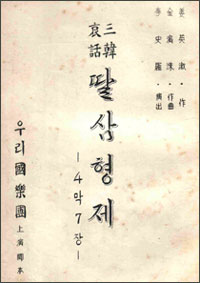 姜英淑·作
金牖潔·作曲
李史羅·演出
三韓
哀話
딸삼형제
-4막7장-
우리國樂團
上演脚本